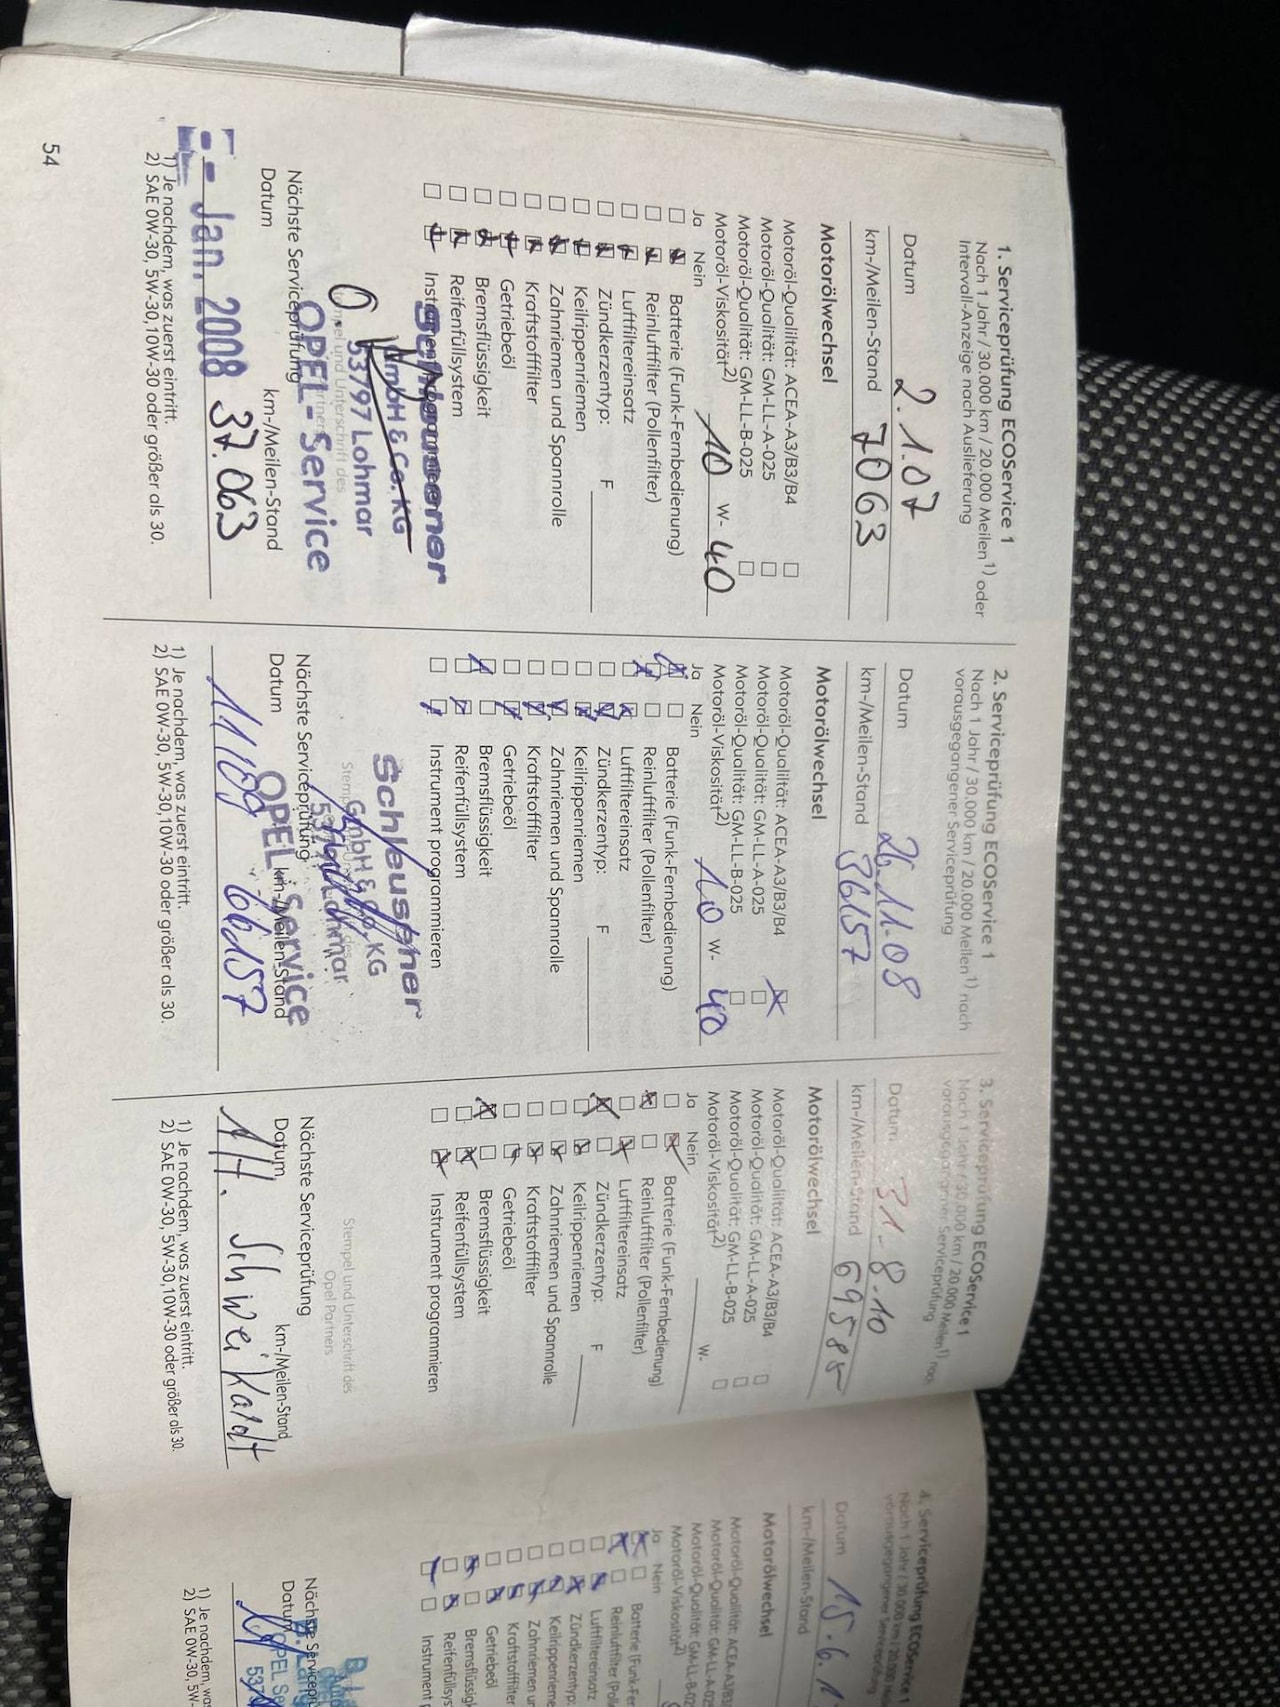 1. Serviceprüfung ECOService 1
Nach 1 Jahr / 30.000 km / 20.000 Meilen1) oder
Intervall-Anzeige nach Auslieferung
Datum 2.1.07
km-/Meilen-Stand 7063
Motorölwechsel
Motoröl-Qualiltät: ACEA-A3/B3/B4
Motoröl-Qualität: GM-LL-A-025
Motoröl-Qualität: GM-LL-B-025
Motoröl-Viskosität2) 10 W- 40
Ja Nein
Batterie (Funk-Fernbedienung)
Reinluftfilter (Pollenfilter)
Luftfiltereinsatz
Zündkerzentyp: F
Keilrippenriemen
Zahnriemen und Spannrolle
Kraftstofffilter
Getriebeöl
Bremsflüssigkeit
Reifenfüllsystem
GmbH & Co. KG
53797 Lohmar
OPEL-Service
Nächste Serviceprüfung
Datum km-/Meilen-Stand
Jan. 2008 37.063
1) Je nachdem, was zuerst eintritt.
2) SAE 0W-30, 5W-30,10W-30 oder größer als 30.
54
2. Serviceprüfung ECOService 1
Nach 1 Jahr / 30.000 km / 20.000 Meilen1) nach
vorausgegangener Serviceprüfung
Datum 26.11.08
km-/Meilen-Stand 36157
Motorölwechsel
Motoröl-Qualiltät: ACEA-A3/B3/B4
Motoröl-Qualität: GM-LL-A-025
Motoröl-Qualität: GM-LL-B-025
Motoröl-Viskosität2) 10 W- 40
Ja Nein
Batterie (Funk-Fernbedienung)
Reinluftfilter (Pollenfilter)
Luftfiltereinsatz
Zündkerzentyp: F
Keilrippenriemen
Zahnriemen und Spannrolle
Kraftstofffilter
Getriebeöl
Bremsflüssigkeit
Reifenfüllsystem
Instrument programmieren
Schleuscher
GmbH & Co. KG
Lohmar
OPEL Service
Nächste Serviceprüfung
Datum km-/Meilen-Stand
11/09 66157
1) Je nachdem, was zuerst eintritt.
2) SAE 0W-30, 5W-30,10W-30 oder größer als 30.
3. Serviceprüfung ECOService 1
Nach 1 Jahr / 30.000 km / 20.000 Meilen1)
vorausgegangener Serviceprüfung
Datum 31-8.10
km-/Meilen-Stand 69585
Motorölwechsel
Motoröl-Qualiltät: ACEA-A3/B3/B4
Motoröl-Qualität: GM-LL-A-025
Motoröl-Qualität: GM-LL-B-025
Motoröl-Viskosität2) W-
Ja Nein
Batterie (Funk-Fernbedienung)
Reinluftfilter (Pollenfilter)
Luftfiltereinsatz
Zündkerzentyp: F
Keilrippenriemen
Zahnriemen und Spannrolle
Kraftstofffilter
Getriebeöl
Bremsflüssigkeit
Reifenfüllsystem
Instrument programmieren
Stempel und Unterschrift des
Opel Partners
Nächste Serviceprüfung
Datum km-/Meilen-Stand
1) Je nachdem, was zuerst eintritt.
2) SAE 0W-30, 5W-30,10W-30 oder größer als 30.
4. Serviceprüfung ECOService
Nach 1 Jahr / 30.000 km / 20.000
vorausgegangener Serviceprüfung
Datum 15.6.1
km-/Meilen-Stand
Motorölwechsel
Motoröl-Qualiltät: ACEA-A3/B3
Motoröl-Qualität: GM-LL-A-02
Motoröl-Qualität: GM-LL-B-02
Motoröl-Viskosität2)
Ja Nein
Batterie (Funk-Fer
Reinluftfilter (Poll
Luftfiltereinsatz
Zündkerzentyp:
Keilrippenrieme
Zahnriemen ur
Kraftstofffilter
Getriebeöl
Bremsflüssig
Reifenfüllsys
Instrument p
Nächste Servicepr
Datum
OPEL Se
1) Je nachdem, was
2) SAE 0W-30, 5W-